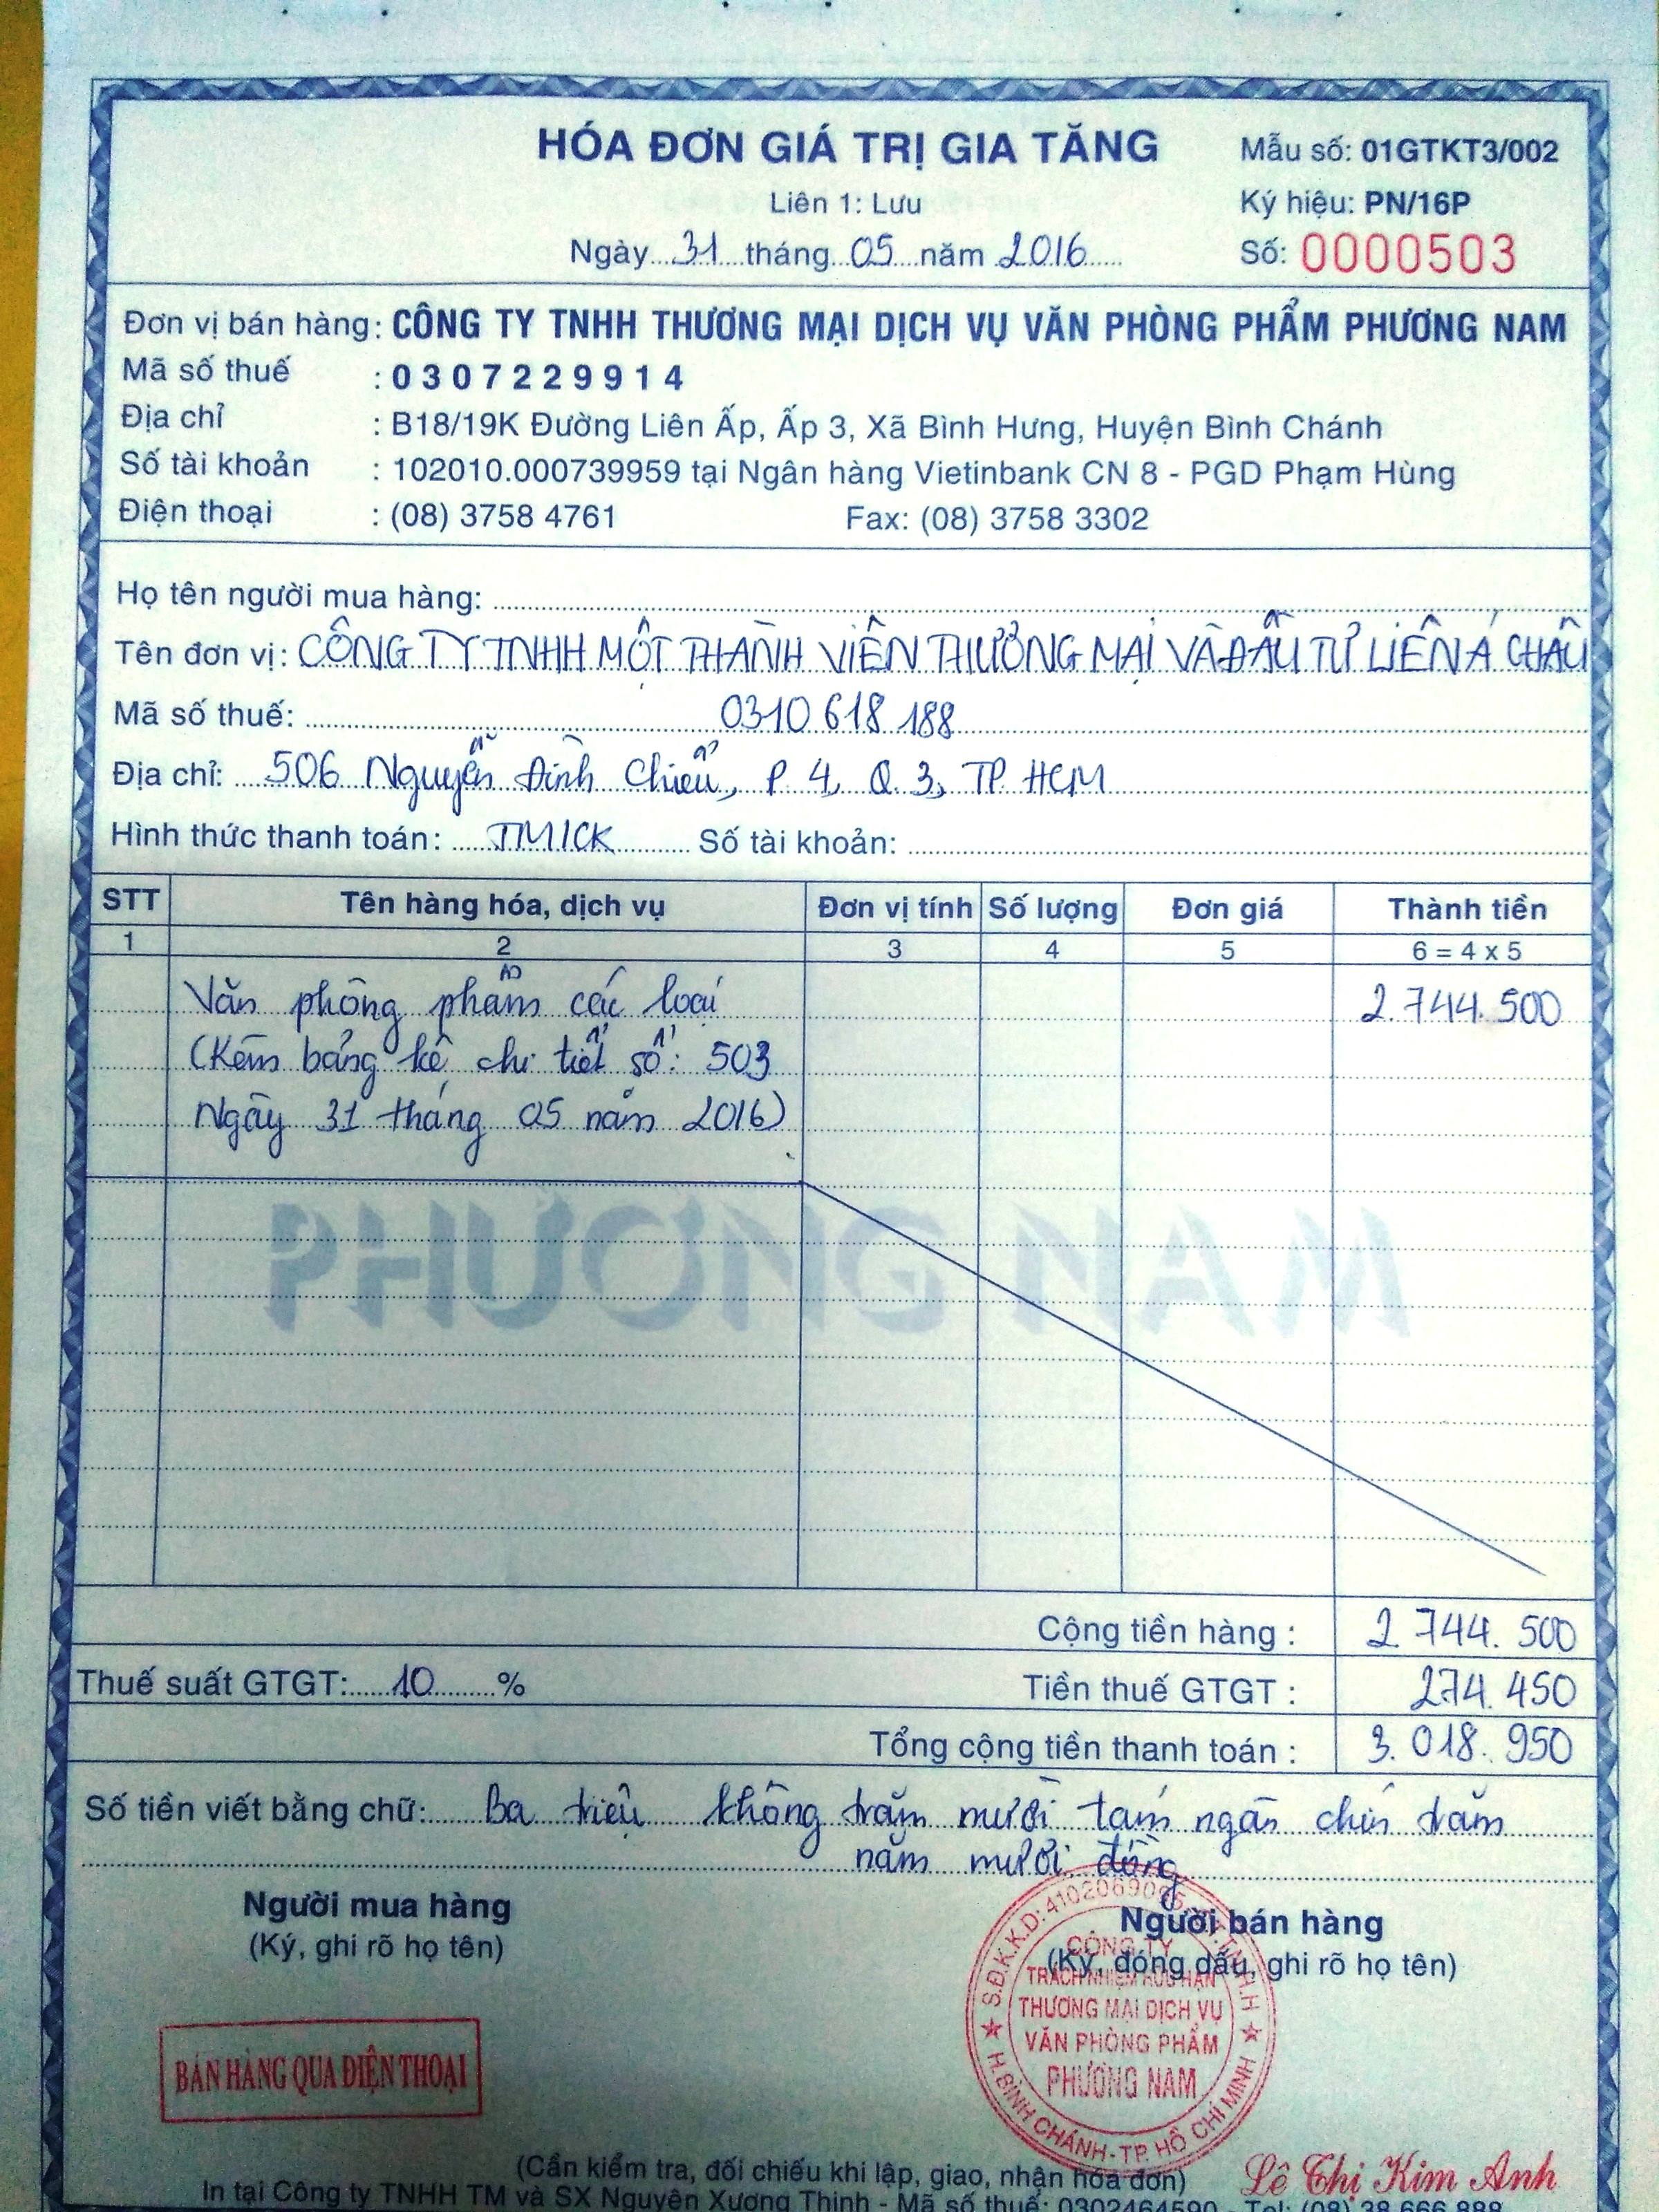 HÓA ĐƠN GIÁ TRỊ GIA TĂNG
Mẫu số: 01GTKT3/002
Liên 1: Lưu
Ký hiệu: PN/16P
Ngày 31 tháng 05 năm 2016
Số: 0000503
Đơn vị bán hàng: CÔNG TY TNHH THƯƠNG MẠI DỊCH VỤ VĂN PHÒNG PHẨM PHƯƠNG NAM
Mã số thuế : 0307229914
Địa chỉ : B18/19K Đường Liên Ấp, Ấp 3, Xã Bình Hưng, Huyện Bình Chánh
Số tài khoản : 102010.000739959 tại Ngân hàng Vietinbank CN 8 - PGD Phạm Hùng
Điện thoại : (08) 3758 4761 Fax: (08) 3758 3302
Họ tên người mua hàng:
Tên đơn vị: CÔNG TY TNHH MỘT THÀNH VIÊN THƯƠNG MẠI VÀ ĐẦU TƯ LIÊN Á CHÂU
Mã số thuế: 0310 618 188
Địa chỉ: 506 Nguyễn Đình Chiểu, P. 4, Q. 3, TP. HCM
Hình thức thanh toán: TM/CK Số tài khoản:
STT Tên hàng hóa, dịch vụ Đơn vị tính Số lượng Đơn giá Thành tiền
1 2 3 4 5 6 = 4 x 5
Văn phòng phẩm các loại 2.744.500
(Kèm bảng kê chi tiết số: 503
Ngày 31 tháng 05 năm 2016)
PHƯƠNG NAM
Cộng tiền hàng : 2.744.500
Thuế suất GTGT: 10 % Tiền thuế GTGT : 274.450
Tổng cộng tiền thanh toán : 3.018.950
Số tiền viết bằng chữ: Ba triệu không trăm mười tám ngàn chín trăm
năm mươi đồng
Người mua hàng
(Ký, ghi rõ họ tên)
Người bán hàng
(Ký, đóng dấu, ghi rõ họ tên)
CÔNG TY
TRÁCH NHIỆM HỮU HẠN
THƯƠNG MẠI DỊCH VỤ
VĂN PHÒNG PHẨM
PHƯƠNG NAM
H.BÌNH CHÁNH-TP. HỒ CHÍ MINH
BÁN HÀNG QUA ĐIỆN THOẠI
Lê Thị Kim Anh
(Cần kiểm tra, đối chiếu khi lập, giao, nhận hóa đơn)
In tại Công ty TNHH TM và SX Nguyên Xương Thịnh - Mã số thuế: 0302464590 - Tel: (08) 38 666 888